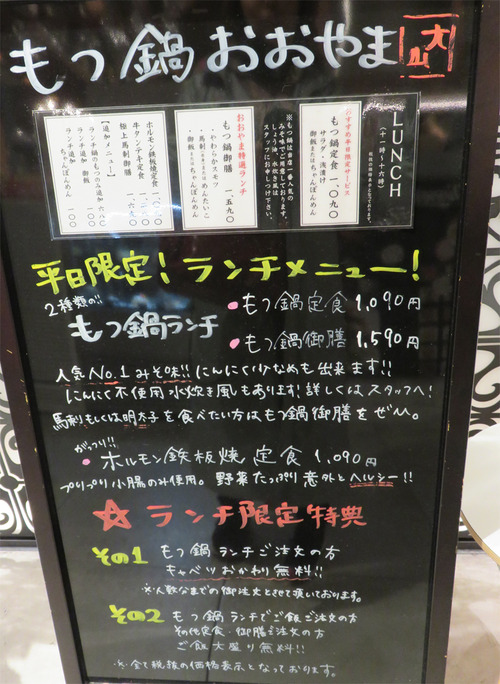 もつ鍋 おおやま 大山
LUNCH
（十一時～十六時）
おすすめ平日限定サービス
もつ鍋定食 一、〇九〇
サラダ・浅漬け
御飯またはちゃんぽんめん
※もつ鍋は当店一番人気の
みそ味でご用意しております。
しょう油、水炊き風は
スタッフにお申しつけ下さい。
おおやま特選ランチ
もつ鍋御膳 一、五九〇
・やわらか酢モツ
・馬刺し またはめんたいこ
・御飯またはちゃんぽんめん
ホルモン鉄板焼定食
牛タンテキ定食
極上馬刺し御膳
【追加メニュー】
ランチ鍋のもつ追加
ランチ追加 御飯
ランチ追加 ちゃんぽんめん
平日限定！ランチメニュー！
2種類の!!
もつ鍋ランチ
・もつ鍋定食 1,090円
・もつ鍋御膳 1,590円
人気No.1みそ味!!にんにく少なめも出来ます!!
にんにく不使用水炊き風もあります!詳しくはスタッフへ!
馬刺しもしくは明太子を食べたい方はもつ鍋御膳をぜひ。
がっつり!!
・ホルモン鉄板焼定食 1,090円
プリプリ小腸のみ使用。野菜たっぷり意外とヘルシー!!
☆ランチ限定特典
その1 もつ鍋ランチご注文の方
キャベツおかわり無料!!
※人数なまでの御注文とさせて頂いております。
その2 もつ鍋ランチでご飯ご注文の方
その他定食・御膳ご注文の方
ご飯大盛り無料!!
※全て税抜の価格表示となっております。